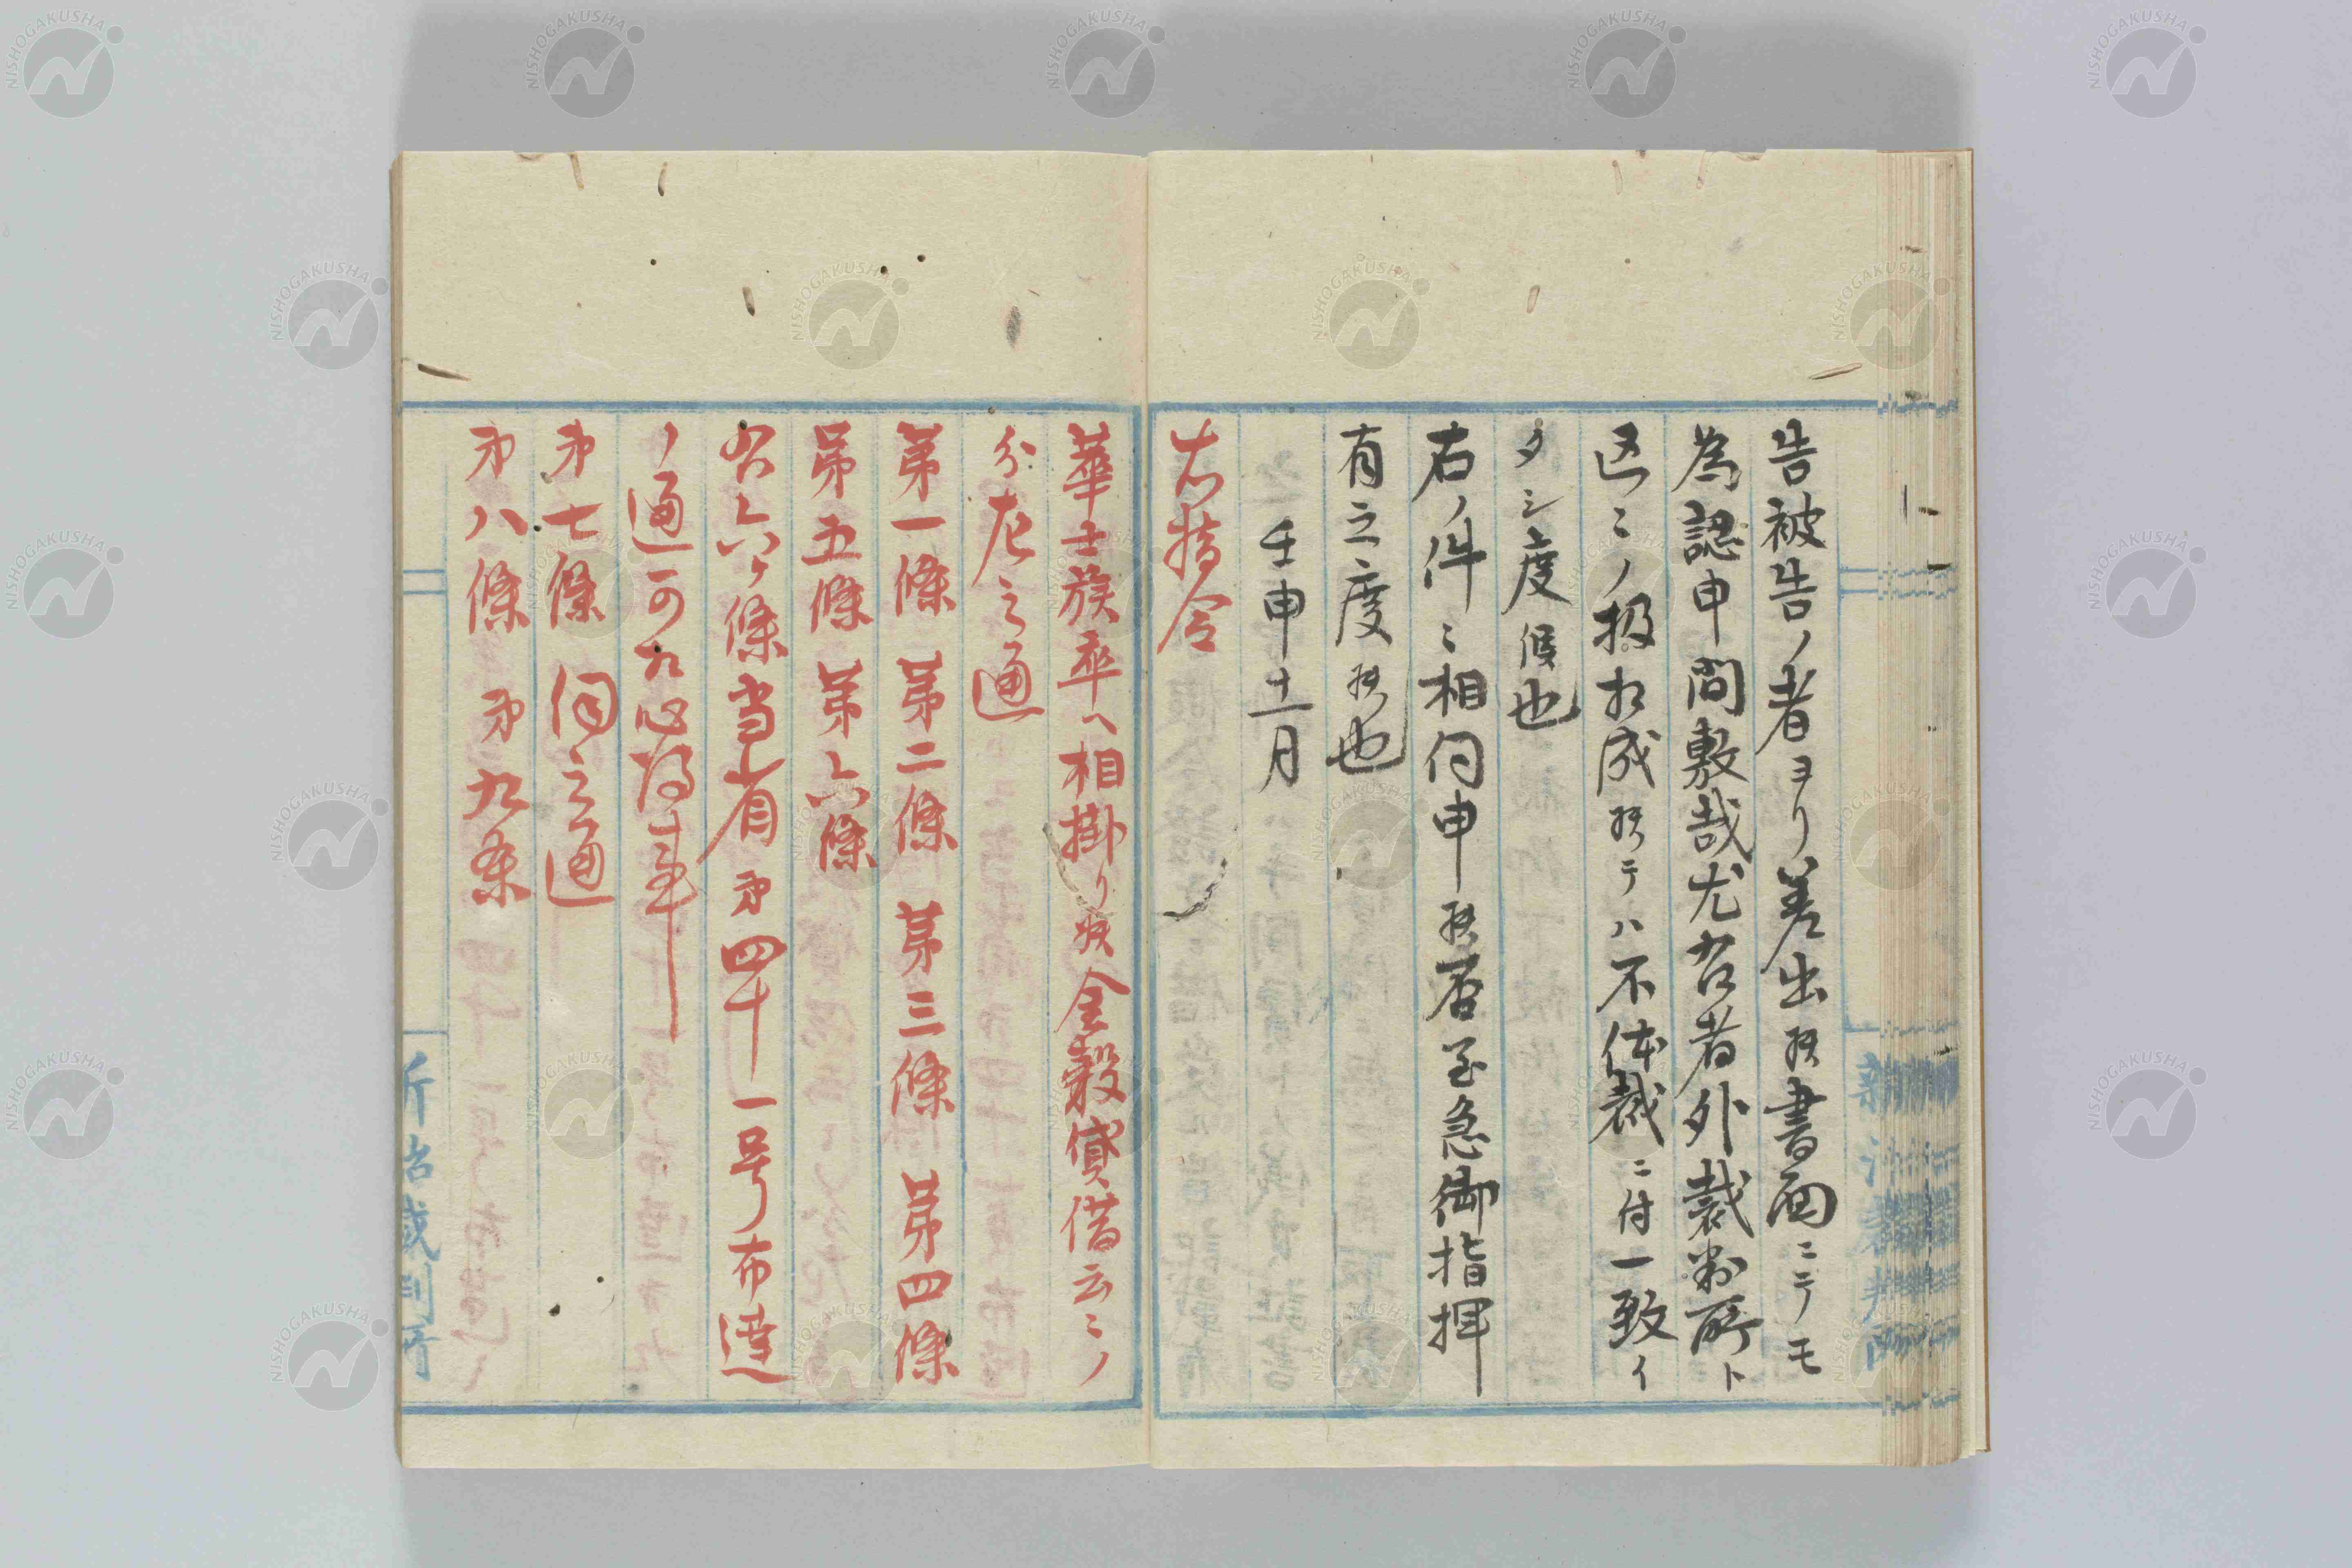 告被告ノ者ヨリ差出候書面ニテモ
為認申間敷哉尤右者外裁判所ト
区ミノ扱相成候テハ不体裁ニ付一致イ
タシ度候也
右ノ件ミ相伺申候間至急御指揮
有之度候也
壬申十一月
右指令
華士族卒ヘ相掛リ候金穀貸借云ミノ
分左之通
第一條 第二條 第三條 第四條
第五條 第六條
右六ケ條当省第四十一号布達
ノ通可相心得事
第七條 伺之通
第八條 第九条
新治裁判所
NISHOGAKUSHA